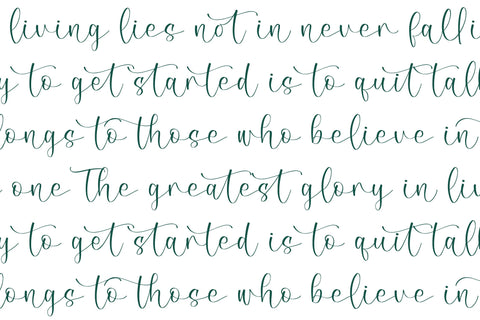 living lies not in never falli
y to get started is to quit talk
longs to those who believe in
one The greatest glory in liv
y to get started is to quit talk
longs to those who believe in